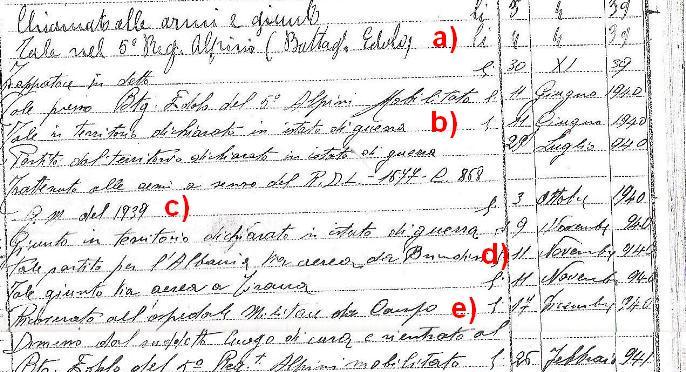 Chiamato alle armi e giunto li 3 " 39
Tale nel 5° Reg. Alpini (Battagl. Edolo) a) li " " 39
Zappatore in detto li 30 XI 39
Tale presso Btg. Edolo del 5° Alpini Mobilitato li 11 Giugno 1940
Tale in territorio dichiarato in istato di guerra b) li 11 Giugno 1940
Partito dal territorio dichiarato in istato di guerra 29 Luglio 940
Trattenuto alle armi a senso del R.D.L. - 1677 - C. 868
G. M. del 1939 c) li 3 Ottobre 1940
Giunto in territorio dichiarato in istato di guerra li 9 Novembre 940
Tale partito per l'Albania via aerea da Brindisi d) 11 Novembre 940
Tale giunto via aerea a Tirana li 11 Novemb 940
Ricoverato all'ospedale Militare da Campo e) li 17 Dicembre 940
Dimesso dal suddetto luogo di cura e rientrato al
Btg. Edolo del 5° Regt Alpini mobilitato li 25 Febbraio 941